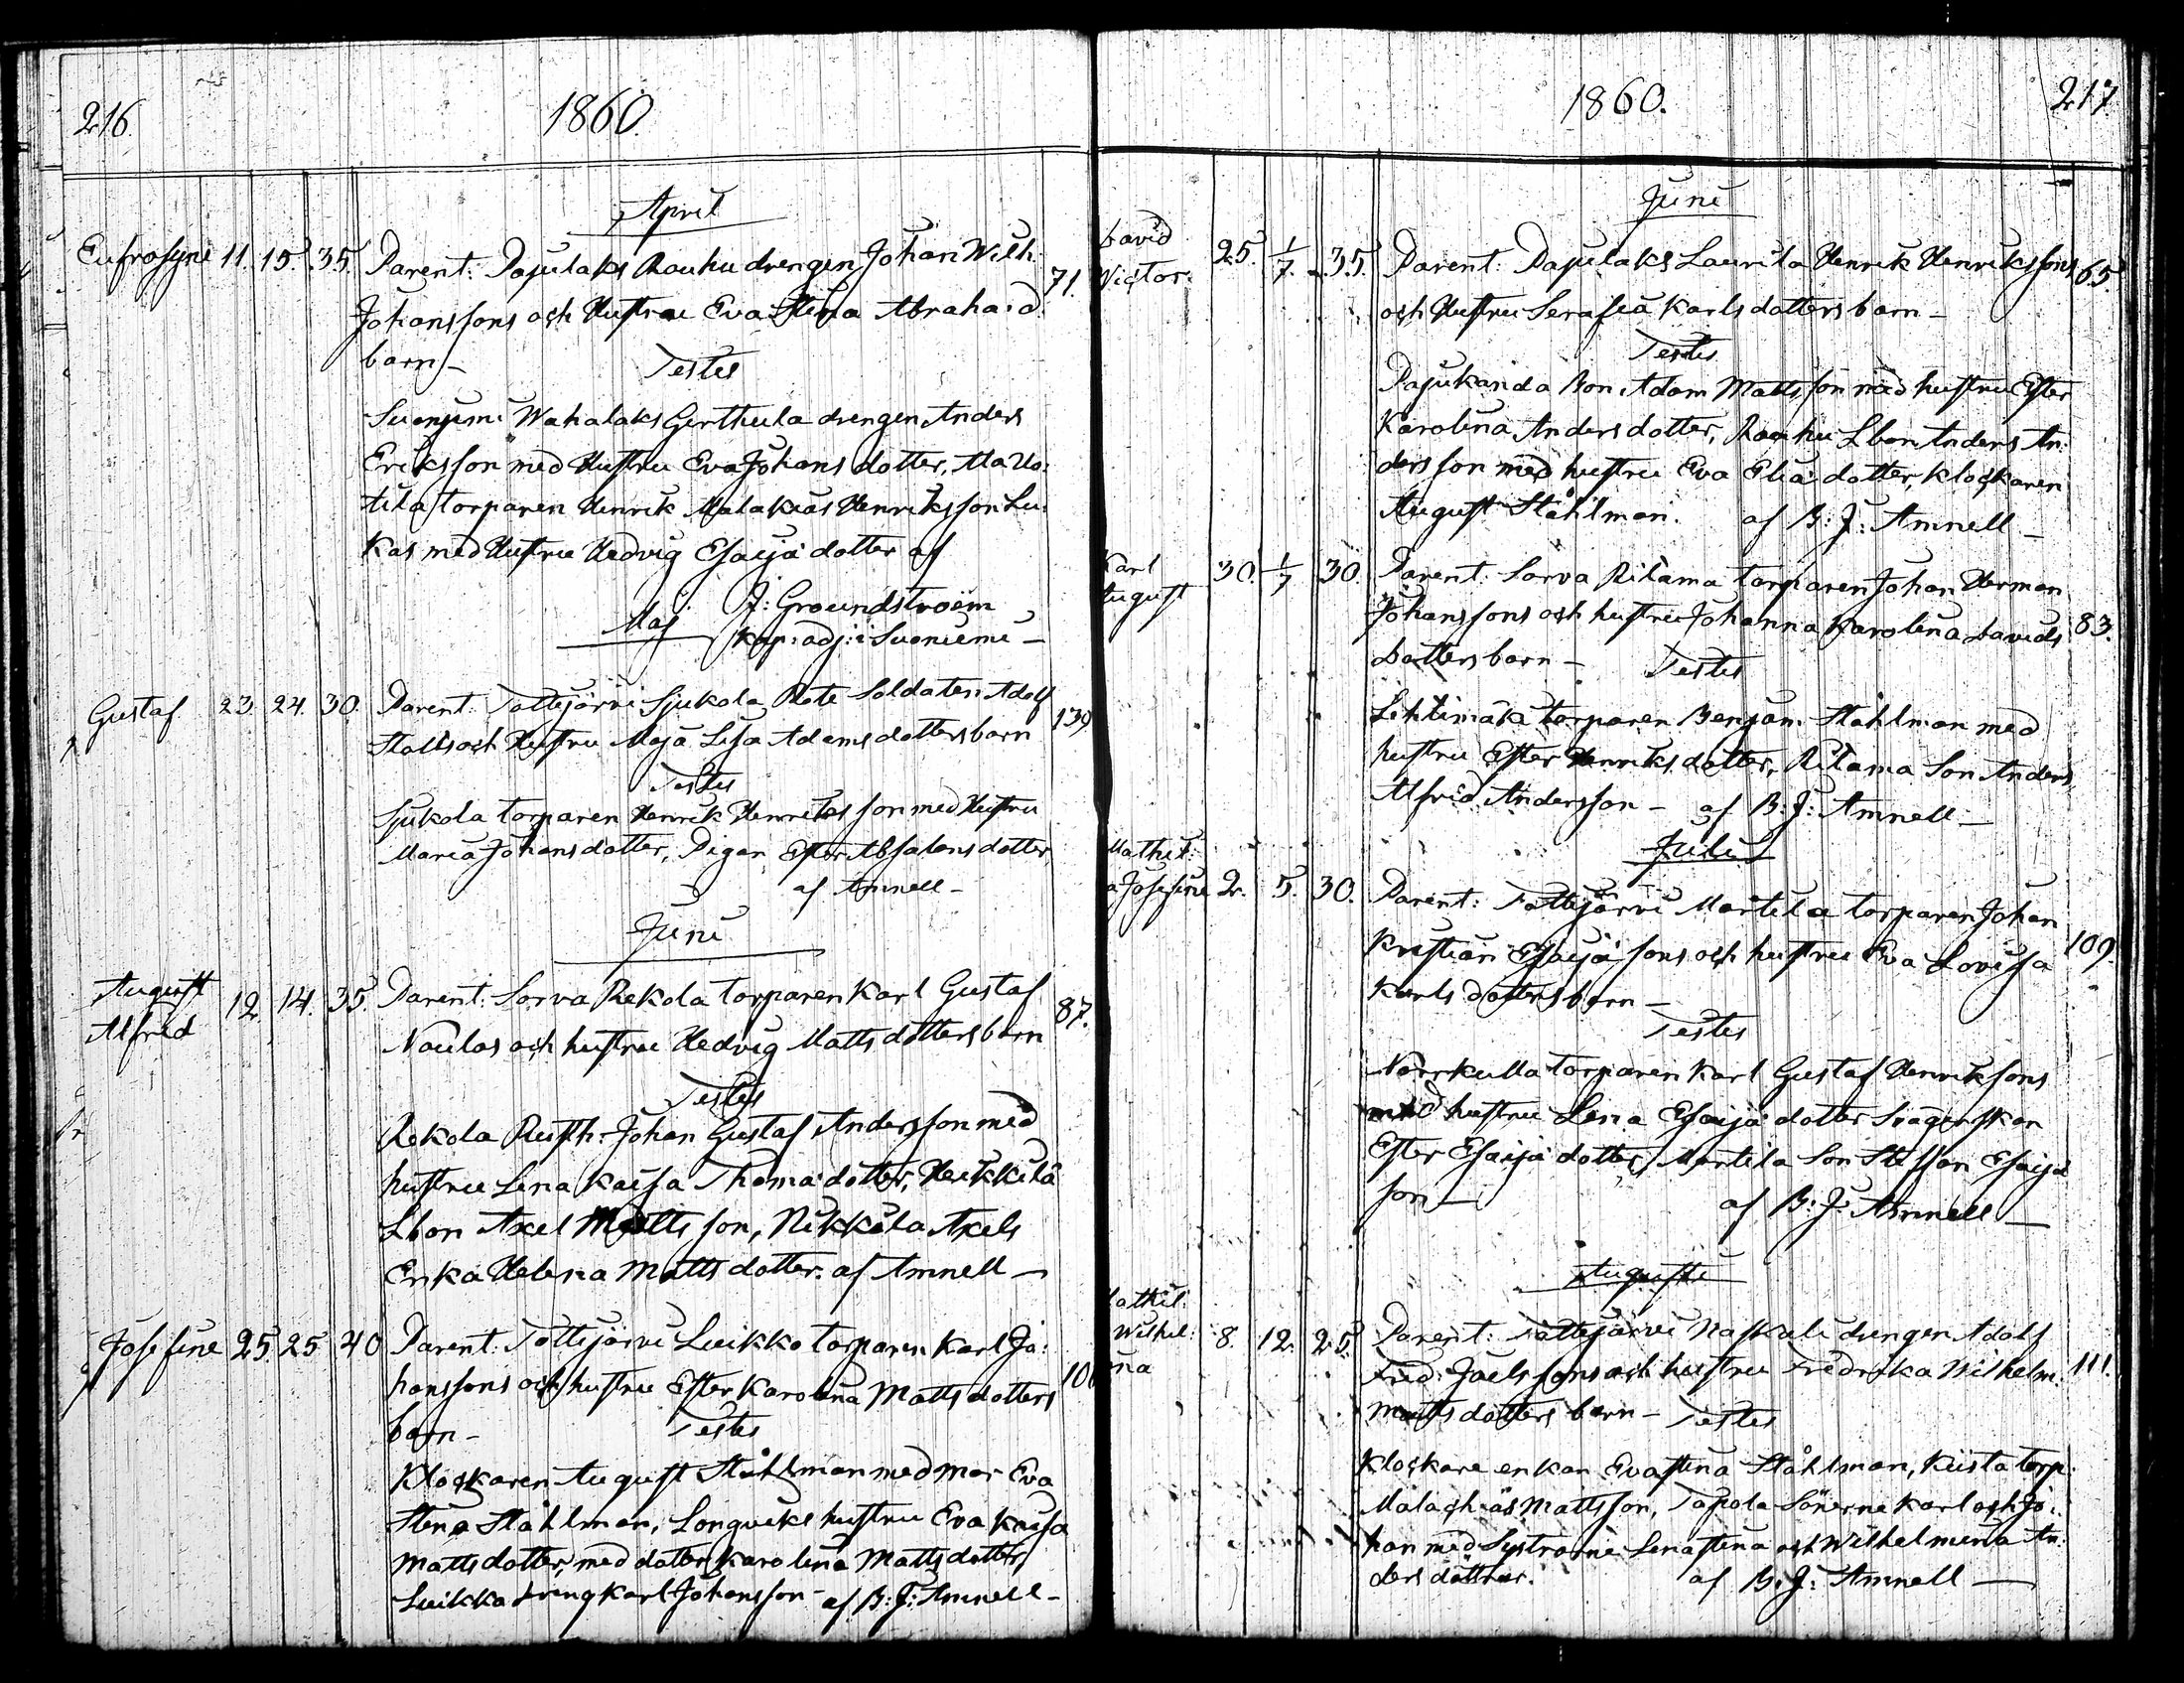 216.
1860.
April
Eufrosyne 11. 15. 35. Parent: Pajulaks Rauhu drengen Johan Wilh:
Johanssons och Hustru Eva Stina Abraha: d: 71.
barn –
Testes
Suonjemi Wahalaks Gerthula drengen Anders
Eriksson med Hustru Eva Johans dotter, Ala Uo:
tila torparen Henrik Malakias Henriksson Lu:
kas med Hustru Hedvig Esaijæ dotter af
J: Groundstroëm
Maj Kap: adj: i Suoniemi –
Gustaf 23. 24. 30. Parent: Tottijärvi Sjukola Rote Soldaten Adolf
Stolts och Hustru Maja Lisa Adams dotters barn 139
Testes
Sjukola torparen Henrik Henriksson med Hustru
Maria Johans dotter, Pigan Ester Absalons dotter,
af Amnell –
Juni
August
Alfred 12. 14. 35. Parent: Sorva Rekola torparen Karl Gustaf
Naulas och hustru Hedvig Matts dotters barn 87.
Testes
Rekola Rusth: Johan Gustaf Andersson med
hustru Lena Kaisa Thomæ dotter, Heikkilä
Lbon Axel Mattsson, Nikkilä Axels
Erika Helena Matts dotter. af Amnell –
Josefine 25. 25 40 Parent: Tottijärvi Luikko torparen Karl Jo:
hanssons och hustru Ester Karolina Matts dotters
barn – Testes
Klockaren August Ståhlman med mor Eva
Stina Ståhlman, Longviks hustru Eva Kaisa
Matts dotter, med dotter Karolina Matts dotter,
Luikka dreng Karl Johansson – af B: J: Amnell –
1860.
217
Juni
David
Victor. 25. 1/7. 35. Parent: Pajulaks Laurila Henrik Henrikssons 65.
och Hustru Serafia Karls dotters barn –
Testes
Pajukanda Bon: Adam Mattsson med hustru Ester
Karolina Anders dotter, Rauhu Lbon Anders An:
dersson med hustru Eva Eliæ dotter, Klockaren
August Ståhlman. af B: J: Amnell –
Karl
August 30. 1/7 30. Parent: Sorva Ritama torparen Johan Herman
Johanssons och hustru Johanna Karolina Davids 83.
dotters barn – Testes
Lehtimäki torparen Benjam: Ståhlman med
hustru Ester Henriks dotter, Ritama Son Anders
Alfrid Andersson – af B: J: Amnell –
Juli
Mathil:
a Josefina 2. 5. 30. Parent: Tottijärvi Martila torparen Johan
Kristian Esaijæ sons och hustru Eva Lovisa 109.
Karls dotters barn –
Testes
Norrkulla torparen Karl Gustaf Henriksons
med hustru Lena Esaijæ dotter Svägerskan
Ester Esaijæ dotter, Martila Son Staffan Esaijæ
son – af B: J: Amnell –
Augusti
athil:
Wilhel:
ina 8. 12. 25. Parent: Tottijärvi Naskali drengen Adolf
Fred: Joels sons och hustru Fredrika Wilhelm: 111.
Matts dotters barn – Testes
Klockare enkan Eva Stina Ståhlman, Kiista torp:
Malachias Mattsson, Tapola Sönerne Karl och Jo:
han med Systrarne Lena Stina och Wilhelmina An:
ders döttrar. af B: J: Amnell –